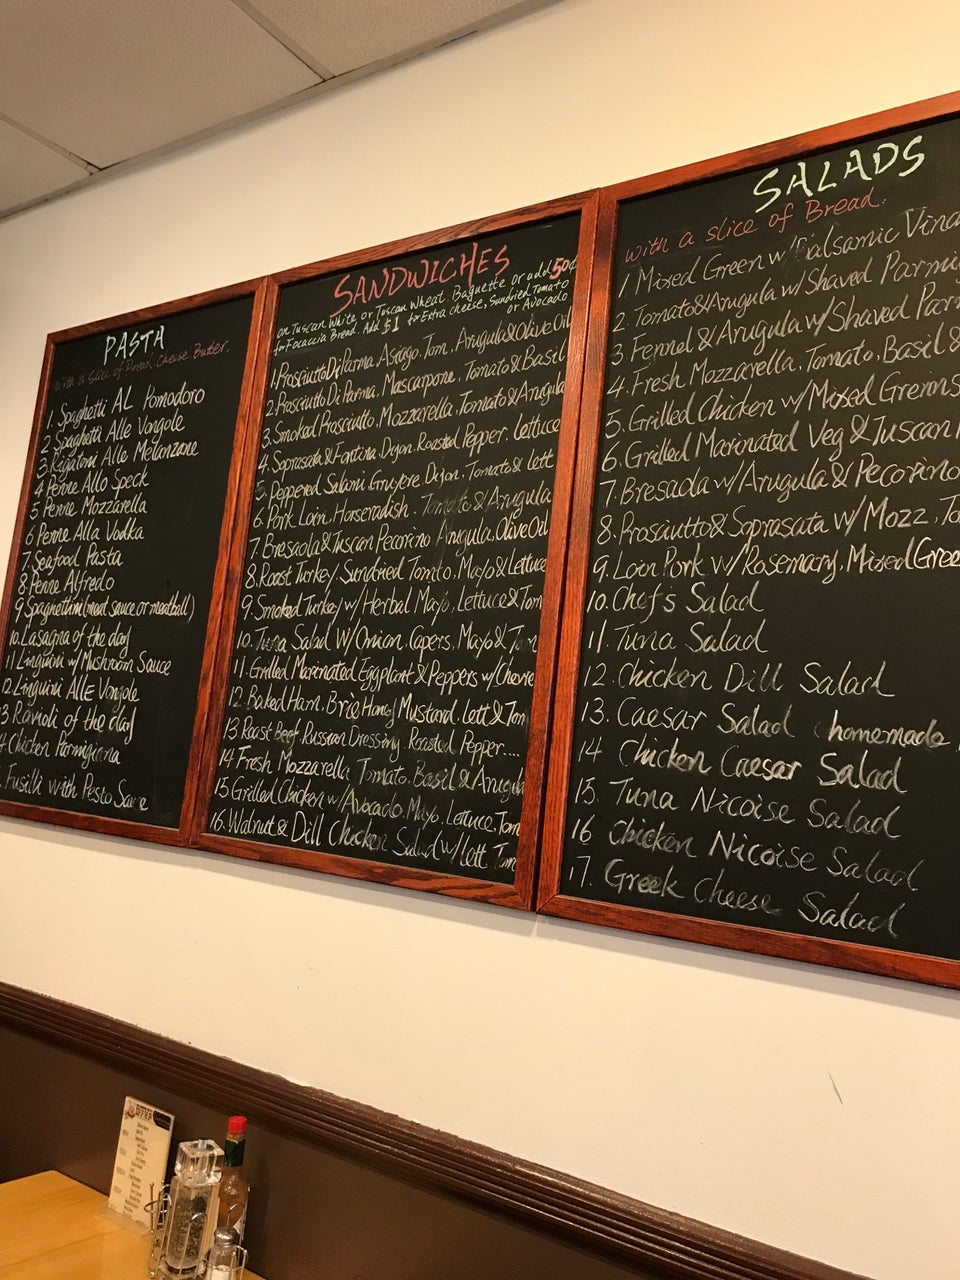 PASTA
with a slice of Bread, Cheese, Butter.
1 Spaghetti AL Pomodoro
2 Spaghetti Alle Vongole
3 Rigatoni Alle Melanzane
4 Penne Allo Speck
5 Penne Mozzarella
6 Penne Alla Vodka
7 Seafood Pasta
8 Penne Alfredo
9 Spaghettini (meat sauce or meatball)
10. Lasagna of the day
11 Linguini w/ Mushroom Sauce
12. Linguini Alle Vongole
3 Ravioli of the day
Chicken Parmigiana
Fusilli with Pesto Sauce
SANDWICHES
on Tuscan White or Tuscan Wheat Baguette or add 50¢
for Focaccia Bread. Add $1 for Extra cheese, Sundried Tomato
or Avocado
1. Prosciutto Di Parma, Asiago, Tom, Arugula & Olive Oil
2. Prosciutto Di Parma, Mascarpone, Tomato & Basil
3. Smoked Prosciutto, Mozzarella, Tomato & Arugula
4. Soprasata & Fontina Dijon, Roasted Pepper, lettuce
5. Peppered Salami Gruyere Dijon, Tomato & lett
6. Pork Loin, Horseradish, Tomato & Arugula
7. Bresaola & Tuscan Pecorino Arugula, Olive Oil
8. Roast Turkey, Sundried Tomato, Mayo & Lettuce
9. Smoked Turkey w/ Herbal Mayo, Lettuce & Tom
10. Tuna Salad W/ Onion, Capers, Mayo & Tom
11. Grilled Marinated Eggplant & Peppers w/ Chevre
12. Baked Ham, Brie Honey Mustard, Lett & Tom
13 Roast Beef, Russian Dressing, Roasted Pepper....
14 Fresh Mozzarella Tomato, Basil & Arugula
15 Grilled Chicken w/ Avocado, Mayo, Lettuce Tom
16. Walnut & Dill Chicken Salad w/ Lett Tom
SALADS
with a slice of Bread.
1 Mixed Green w/ Balsamic Vina
2. Tomato & Arugula w/ Shaved Parmi
3. Fennel & Arugula w/ Shaved Par
4. Fresh Mozzarella, Tomato, Basil &
5. Grilled Chicken w/ Mixed Greens
6. Grilled Marinated Veg & Tuscan
7. Bresaola w/ Arugula & Pecorino
8. Prosciutto & Soprasata w/ Mozz, To
9. Loin Pork w/ Rosemary, Mixed Gree
10. Chefs Salad
11. Tuna Salad
12. Chicken Dill Salad
13. Caesar Salad (homemade
14 Chicken Caesar Salad
15. Tuna Nicoise Salad
16 Chicken Nicoise Salad
17. Greek Cheese Salad